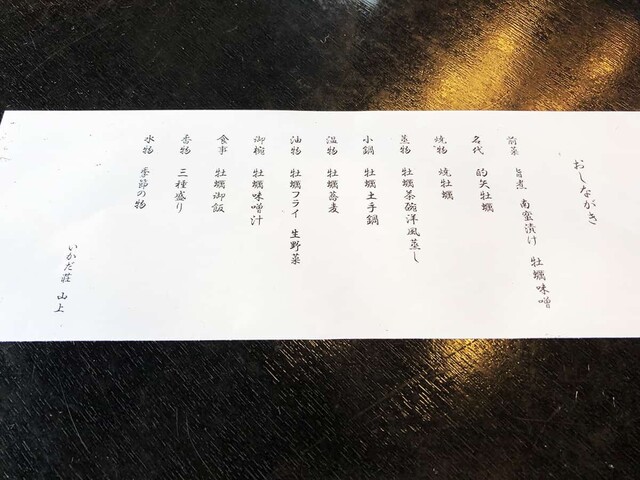 おしながき
前菜 旨煮 南蛮漬け 牡蠣味噌
名代 的矢牡蠣
焼物 焼牡蠣
蒸物 牡蠣茶碗洋風蒸し
小鍋 牡蠣土手鍋
温物 牡蠣蕎麦
油物 牡蠣フライ 生野菜
御椀 牡蠣味噌汁
食事 牡蠣御飯
香物 三種盛り
水物 季節の物
いかだ荘 山上